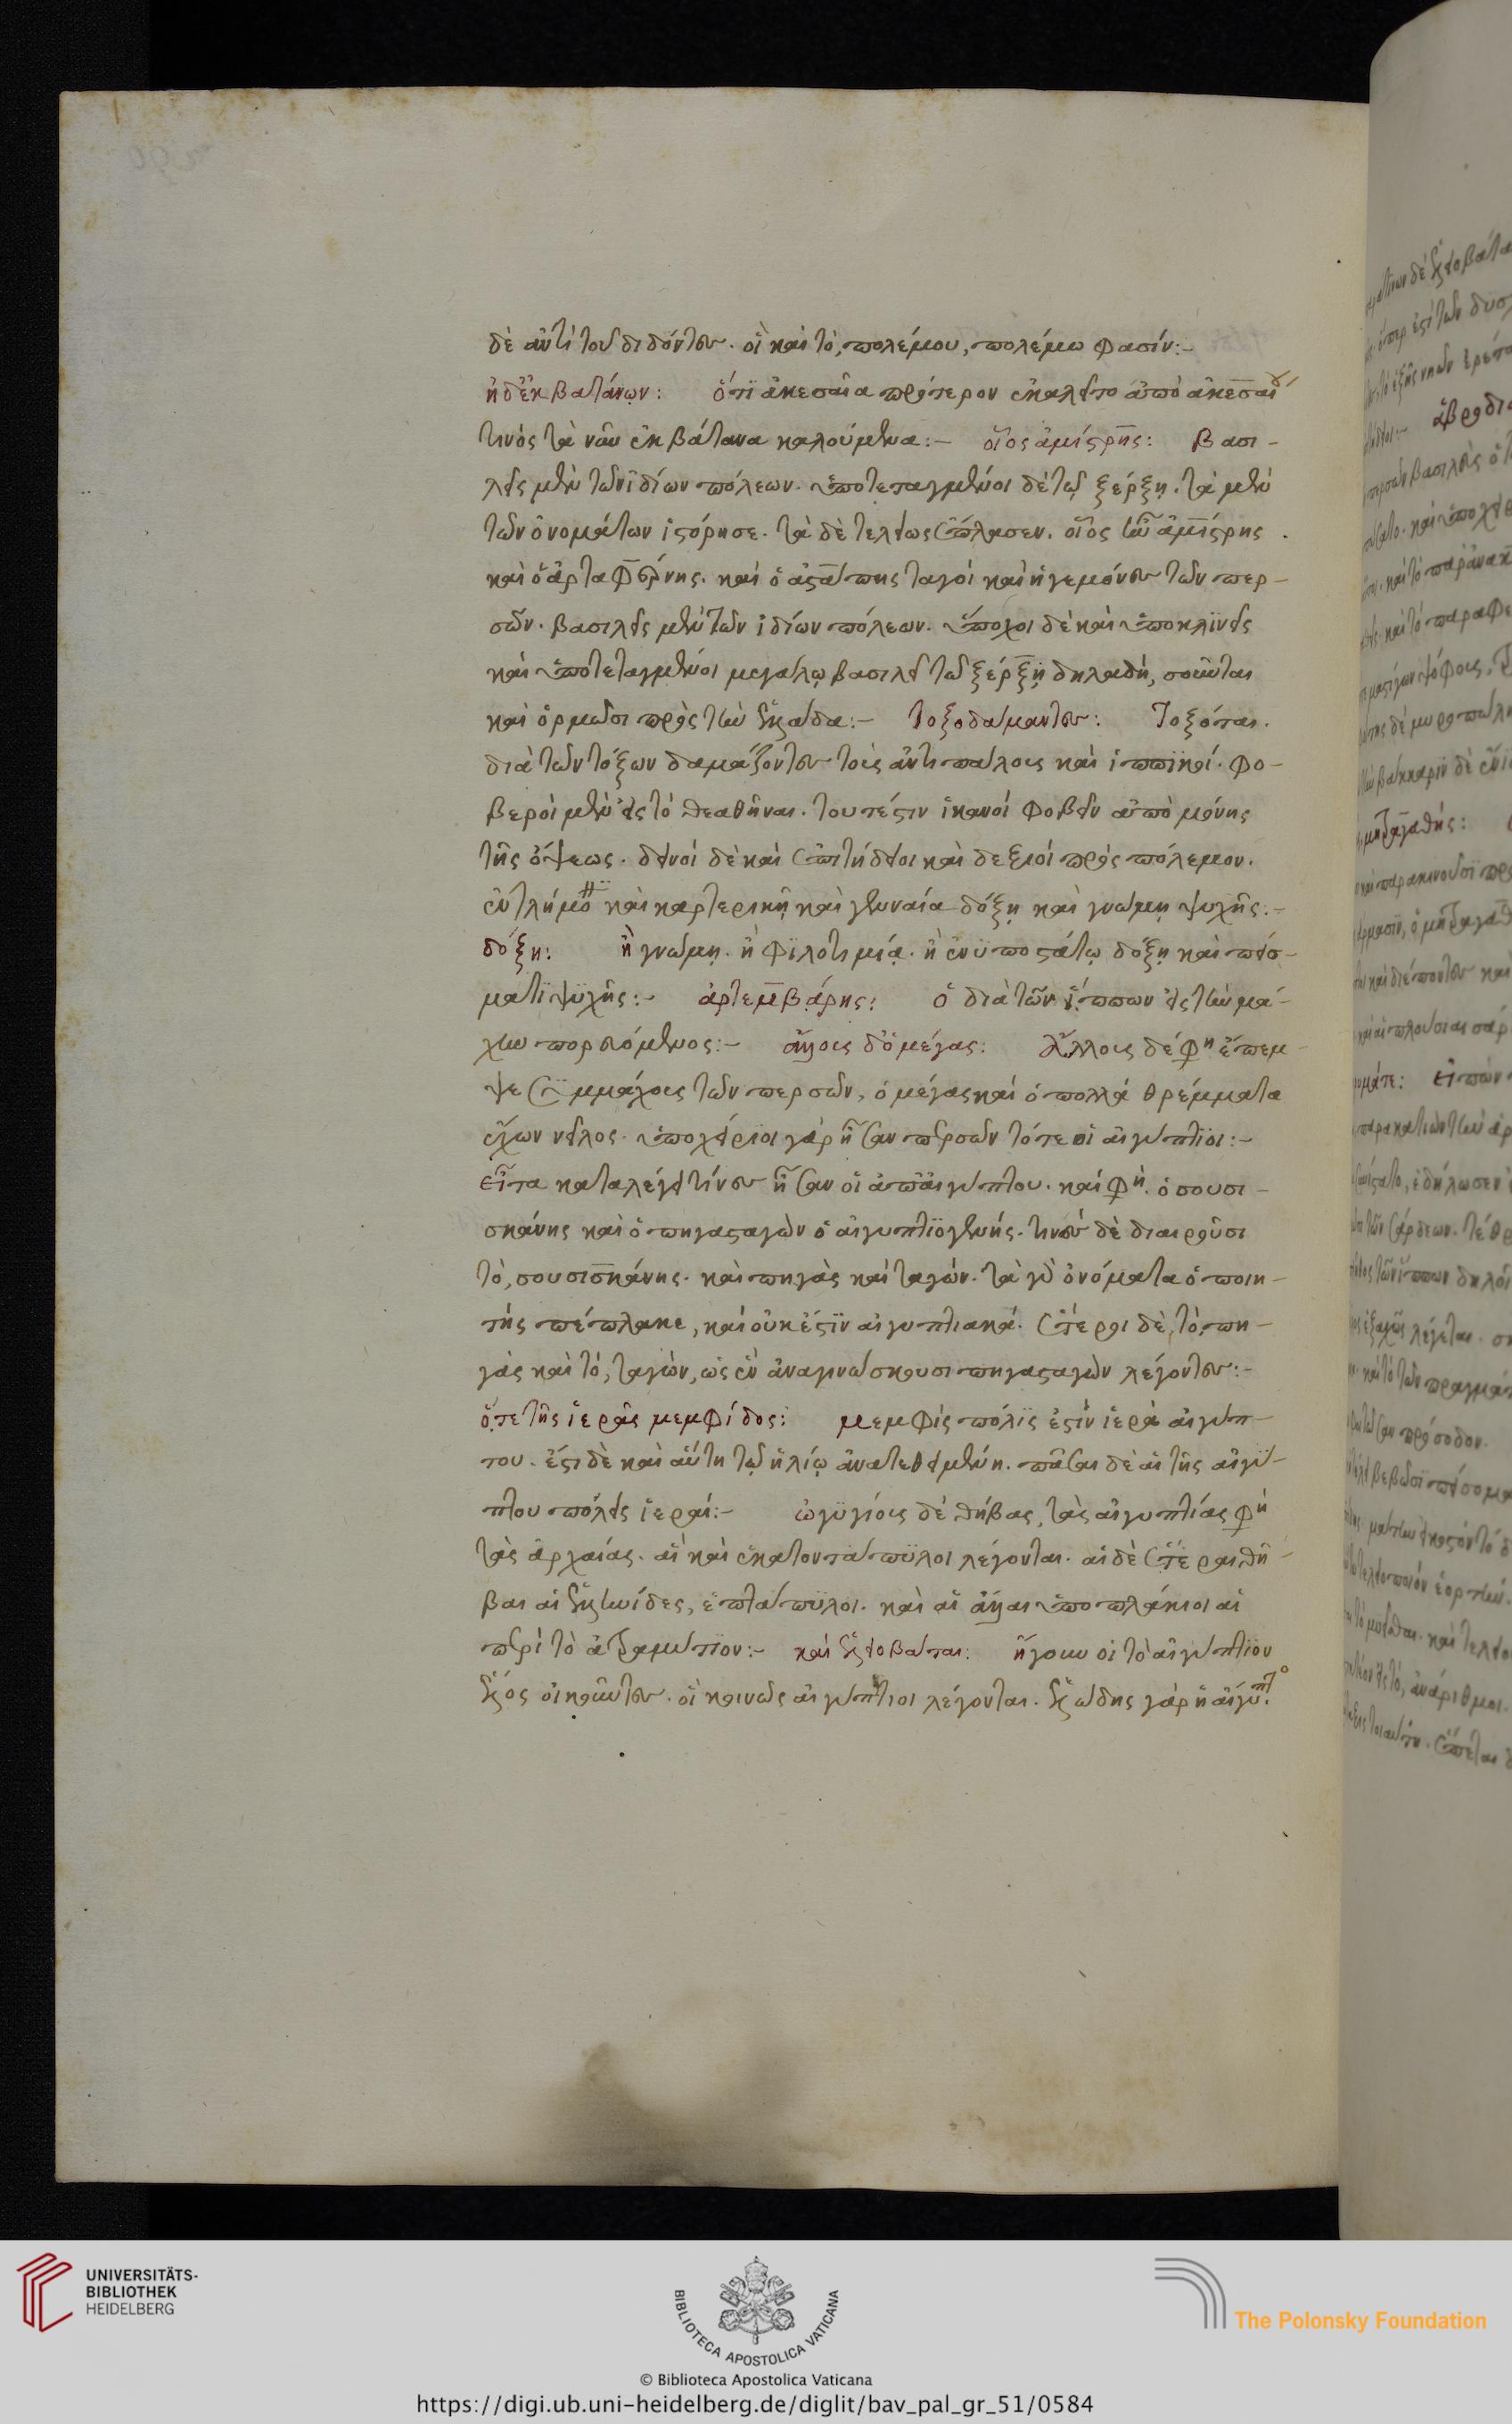 δὲ ἀντὶ τοῦ διδόντες. οἳ καὶ τὸ, πολέμου, πολέμω φασίν:-
ἠδ' ἐκβατάνων: ὅτι ἀκεσαῖα πρότερον ἐκαλεῖτο ἀπὸ ἀκεσαίου
τινὸς τὰ νῦν ἐκβάτανα καλούμενα:- οἷος ἀμίστρης: βασι-
λεῖς μὲν τῶν ἰδίων πόλεων. ὑποτεταγμένοι δὲ τῷ ξέρξῃ. τὰ μὲν
τῶν ὀνομάτων ἱστόρησε. τὰ δὲ τελείως ἔπλασεν. οἷος ἦν ἀμίστρης
καὶ ὁ ἀρταφρένης. καὶ ὁ ἀστάσπης ταγοὶ καὶ ἡγεμόνες τῶν περ-
σῶν. βασιλεῖς μὲν τῶν ἰδίων πόλεων. ὕποχοι δὲ καὶ ὑποκλινεῖς
καὶ ὑποτεταγμένοι μεγάλῳ βασιλεῖ τῷ ξέρξῃ δηλαδή, σοῦνται
καὶ ὁρμῶσι πρὸς τὴν ἑλλάδα:- τοξοδάμαντες: τοξόται.
διὰ τῶν τόξων δαμάζοντες τοὺς ἀντιπάλους καὶ ἱππικοί. φο-
βεροὶ μὲν εἰς τὸ θεαθῆναι. τουτέστιν ἱκανοὶ φοβεῖν ἀπὸ μόνης
τῆς ὄψεως. δεινοὶ δὲ καὶ ἐπιτήδειοι καὶ δεξιοὶ πρὸς πόλεμον.
ἐν τλήμο καὶ καρτερικῇ καὶ γενναία δόξῃ καὶ γνώμῃ ψυχῆς:-
δόξη: ἢ γνώμῃ. ἢ φιλοτιμίᾳ. ἢ ἐνυποστάτῳ δόξῃ καὶ πείσ-
ματι ψυχῆς:- ἀρτεμβάρης: ὁ διὰ τῶν ἵππων εἰς τὴν μά-
χην πορευόμενος:- ἄλλους δ' ὁ μέγας: ἄλλους δέ φη ἔπεμ-
ψε συμμάχους τῶν περσῶν, ὁ μέγας καὶ ὁ πολλὰ θρέμματα
ἔχων νεῖλος. ὑποχείριοι γὰρ ἦσαν περσῶν τότε οἱ αἰγύπτιοι:-
εἶτα καταλέγει τίνες ἦσαν οἱ ἀπ' αἰγύπτου. καί φη. ὁ σουσι-
σκάνης καὶ ὁ πηγασταγὼν ὁ αἰγυπτιογενής. τινὲς δὲ διαιροῦσι
τὸ, σουσισκάνης. καὶ πηγὰς καὶ ταγών. τὰ γὰρ ὀνόματα ὁ ποιη-
τὴς πέπλακε, καὶ οὐκ ἔστιν αἰγυπτιακά. ἕτεροι δὲ, τὸ, πη-
γὰς καὶ τὸ, ταγὼν, ὡς ἓν ἀναγινώσκουσι πηγασταγὼν λέγοντες:-
ὅτε τῆς ἱερᾶς μεμφίδος: μεμφὶς πόλις ἐστὶν ἱερὰ αἰγύπ-
του. ἔστι δὲ καὶ αὕτη τῷ ἡλίῳ ἀνατεθειμένη. πᾶσαι δὲ αἱ τῆς αἰγύ-
πτου πόλεις ἱεραί:- ὠγυγίους δὲ θήβας, τὰς αἰγυπτίας φη
τὰς ἀρχαίας. αἳ καὶ ἑκατοντάπυλοι λέγονται. αἱ δὲ ἕτεραι θῆ-
βαι αἱ ἑλληνίδες, ἑπτάπυλοι. καὶ αἱ ἄλλαι ὑποπλάκιοι αἱ
περὶ τὸ ἀτραμύτιον:- καὶ ἑλειοβάται: ἤγουν οἱ τὸ αἰγύπτιον
ἕλος οἰκοῦντες. οἳ κοινῶς αἰγύπτιοι λέγονται. ἑλώδης γὰρ ἡ αἴγυπτο.
UNIVERSITÄTS-
BIBLIOTHEK
HEIDELBERG
BIBLIOTECA APOSTOLICA VATICANA
The Polonsky Foundation
© Biblioteca Apostolica Vaticana
https://digi.ub.uni-heidelberg.de/diglit/bav_pal_gr_51/0584